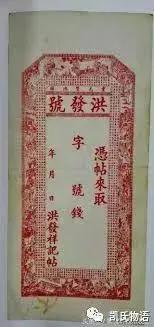 洪發號
憑帖來取
字號錢
年月日洪發祥記帖
凯氏物语